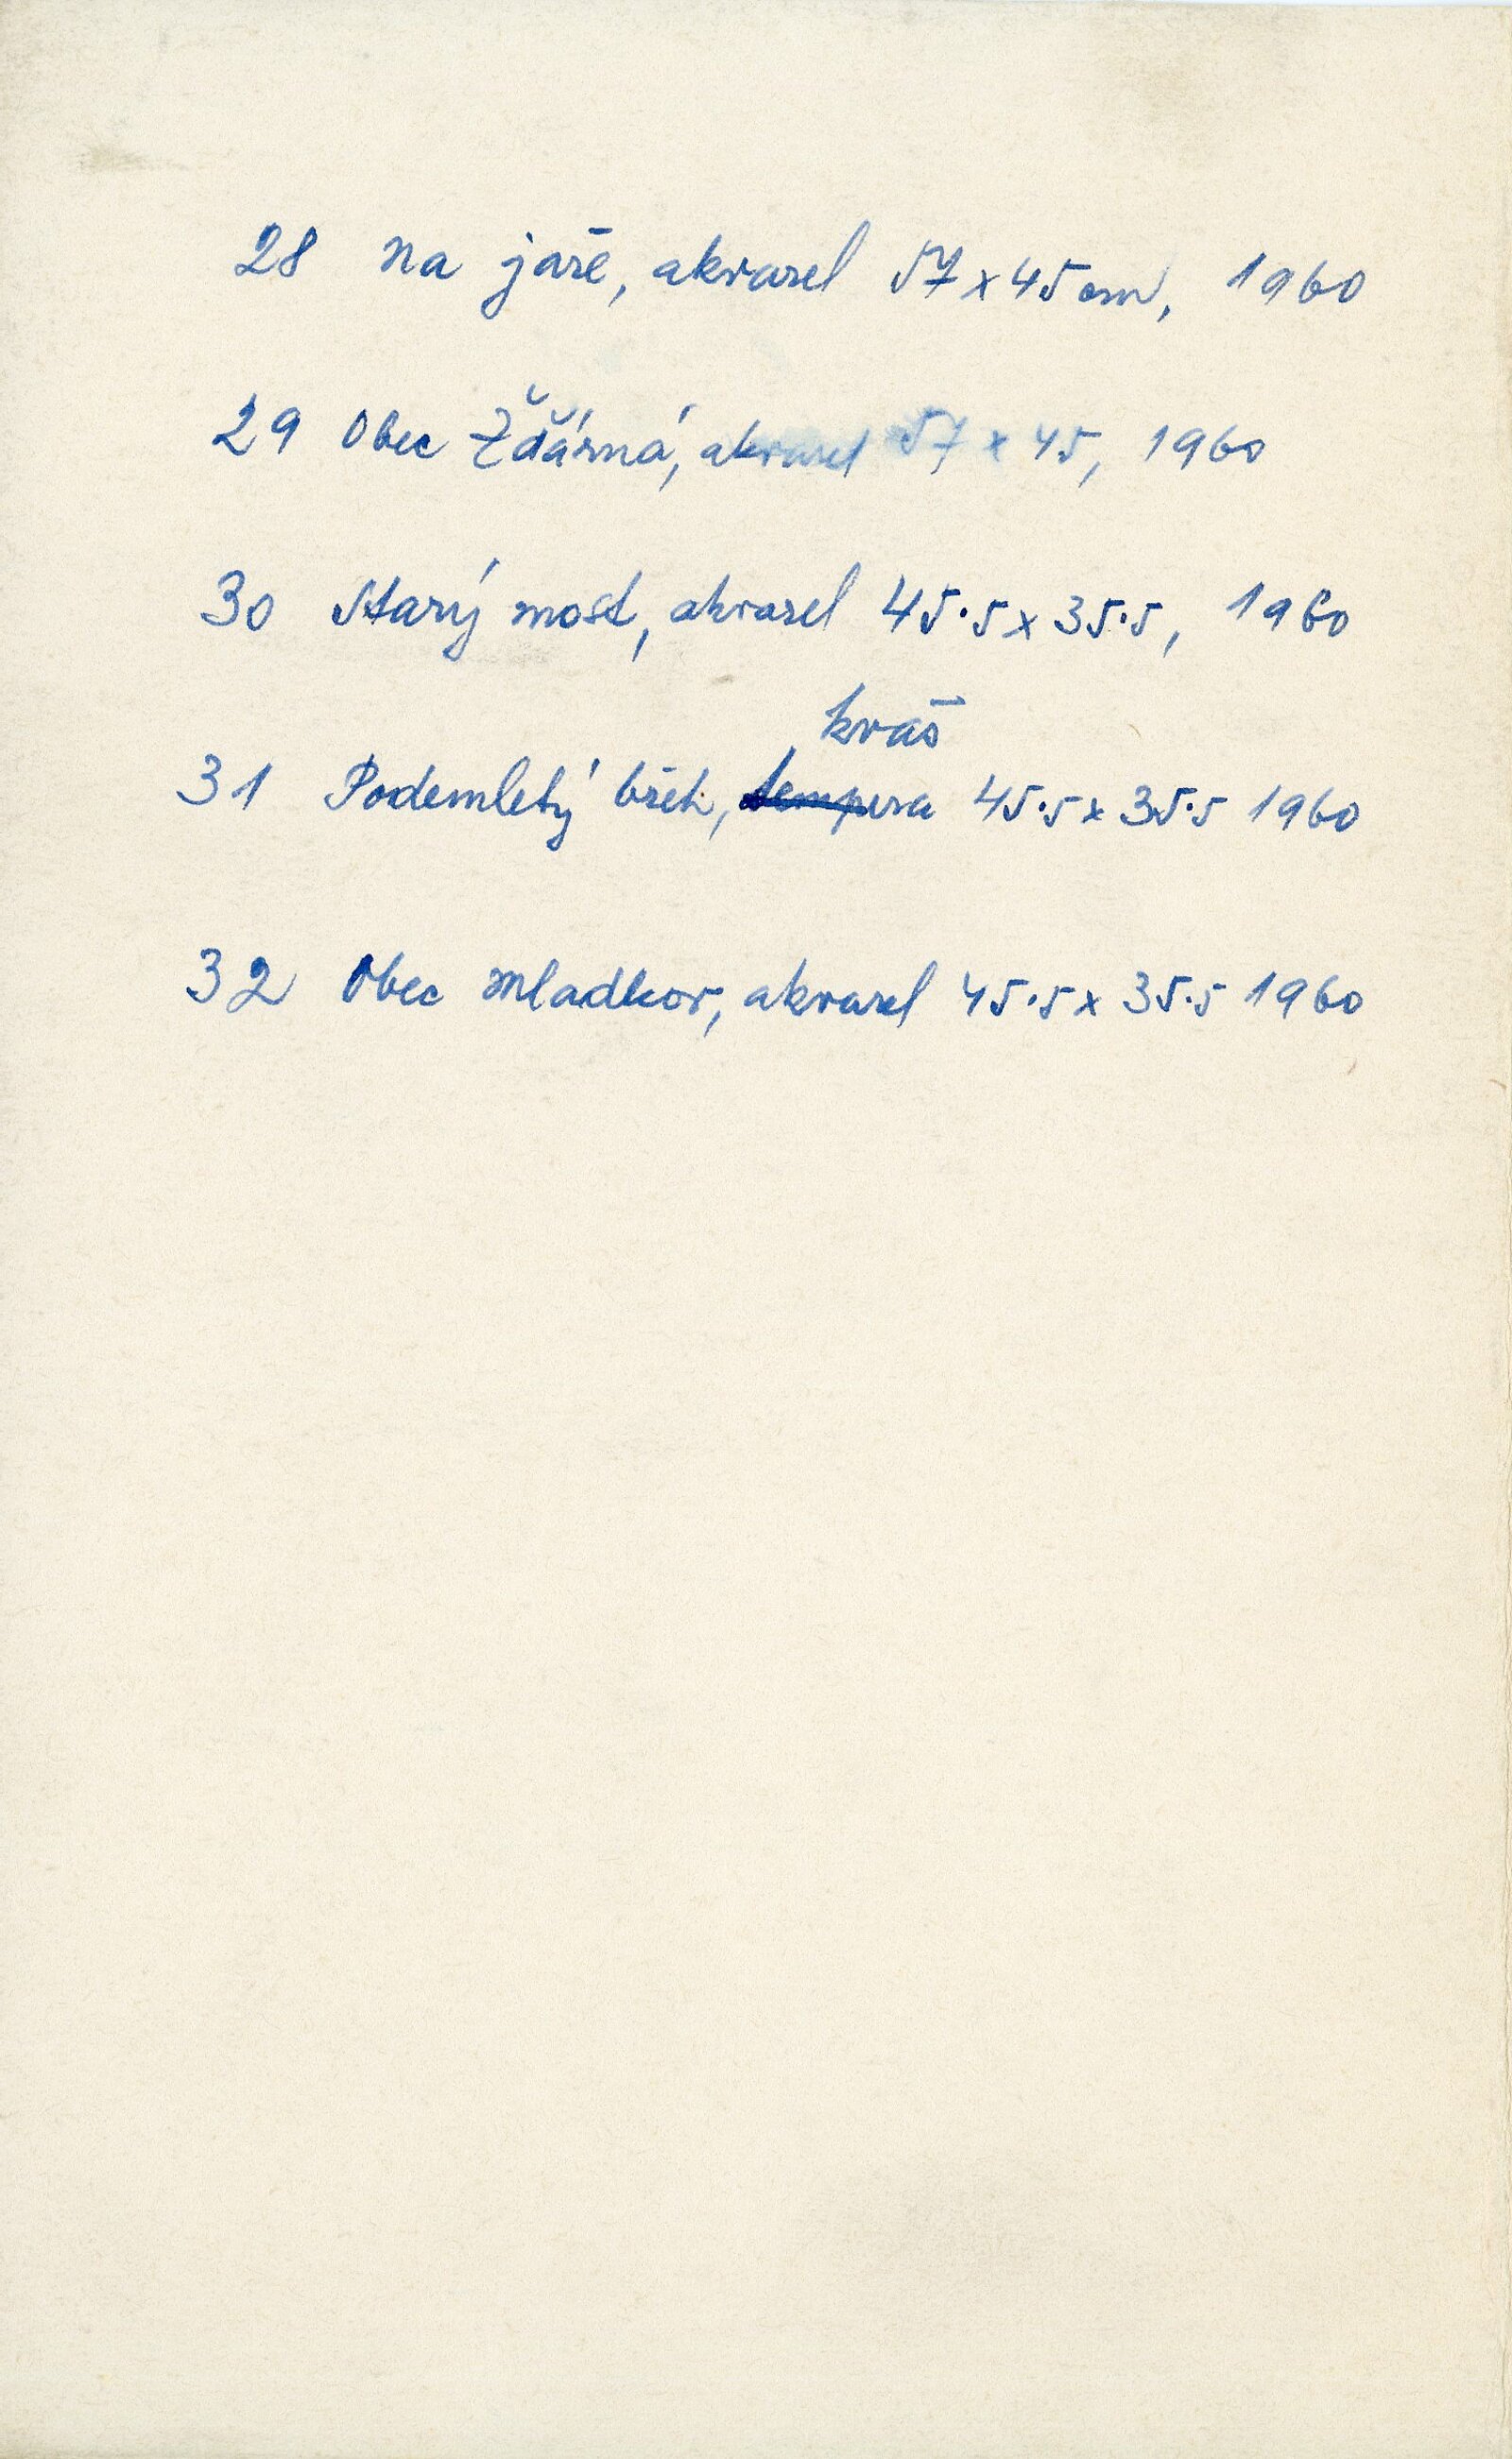 28 Na jaře, akvarel 57 x 45 cm, 1960
29 Obec Žďárná, akvarel 57 x 45, 1960
30 Starý most, akvarel 45.5 x 35.5, 1960
kvaš
31 Podemletý břeh, tempera 45.5 x 35.5 1960
32 Obec Mladkov, akvarel 45.5 x 35.5 1960